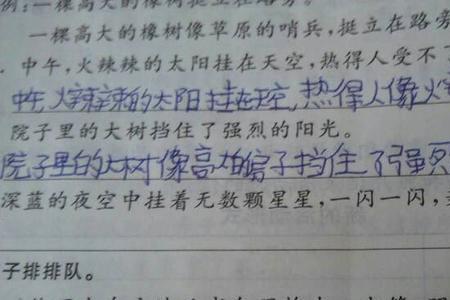 例:一棵高大的橡树挺立在路旁。
一棵高大的橡树像草原的哨兵,挺立在路旁
.中午,火辣辣的太阳挂在天空,热得人受不了
中午,火辣辣的太阳挂在天空,热得人像火
院子里的大树挡住了强烈的阳光。
院子里的大树像高大的 子挡住了强烈
深蓝的夜空中挂着无数颗星星,一闪一闪,
子排排队。